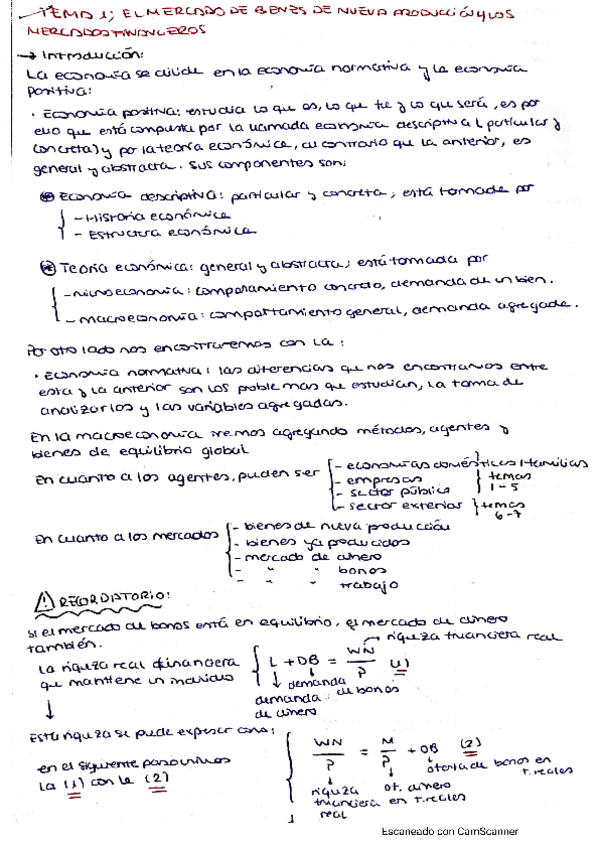 TEMA 1; EL MERCADO DE BIENES DE NUEVA PRODUCCIÓN Y LOS
MERCADOS FINANCIEROS
→ Introducción:
La economía se divide en la economía normativa y la economía
positiva:
· Economía positiva: estudia lo que es, lo que fue y lo que será, es por
ello que está compuesta por la llamada economía descriptiva (particular y
concreta) y por la teoría económica, al contrario que la anterior, es
general y abstracta. Sus componentes son:
* Economía descriptiva: particular y concreta; está formada por
- Historia económica
- Estructura económica
* Teoría económica: general y abstracta; está formada por
- microeconomía: comportamiento concreto, demanda de un bien.
- macroeconomía: comportamiento general, demanda agregada.
Por otro lado nos encontraremos con la:
· Economía normativa: las diferencias que nos encontramos entre
esta y la anterior son los problemas que estudian, la forma de
analizarlos y las variables agregadas.
En la macroeconomía iremos agregando métodos, agentes y
bienes de equilibrio global
En cuanto a los agentes, pueden ser
- economías domésticas / familias
- empresas
- sector público
temas 1-5
- sector exterior
temas 6-7
En cuanto a los mercados
- bienes de nueva producción
- bienes ya producidos
- mercado de dinero
- " " bonos
- " " trabajo
⚠ RECORDATORIO:
Si el mercado de bonos está en equilibrio, el mercado de dinero
también.
→ riqueza financiera real
La riqueza real financiera
que mantiene un individuo
L + DB = WN/P (1)
demanda de dinero
demanda de bonos
Esta riqueza se puede expresar como:
WN/P = M/P + OB (2)
riqueza financiera real
of. dinero en T. reales
oferta de bonos en T. reales
en el siguiente paso unimos
la (1) con la (2)
1
Escaneado con CamScanner